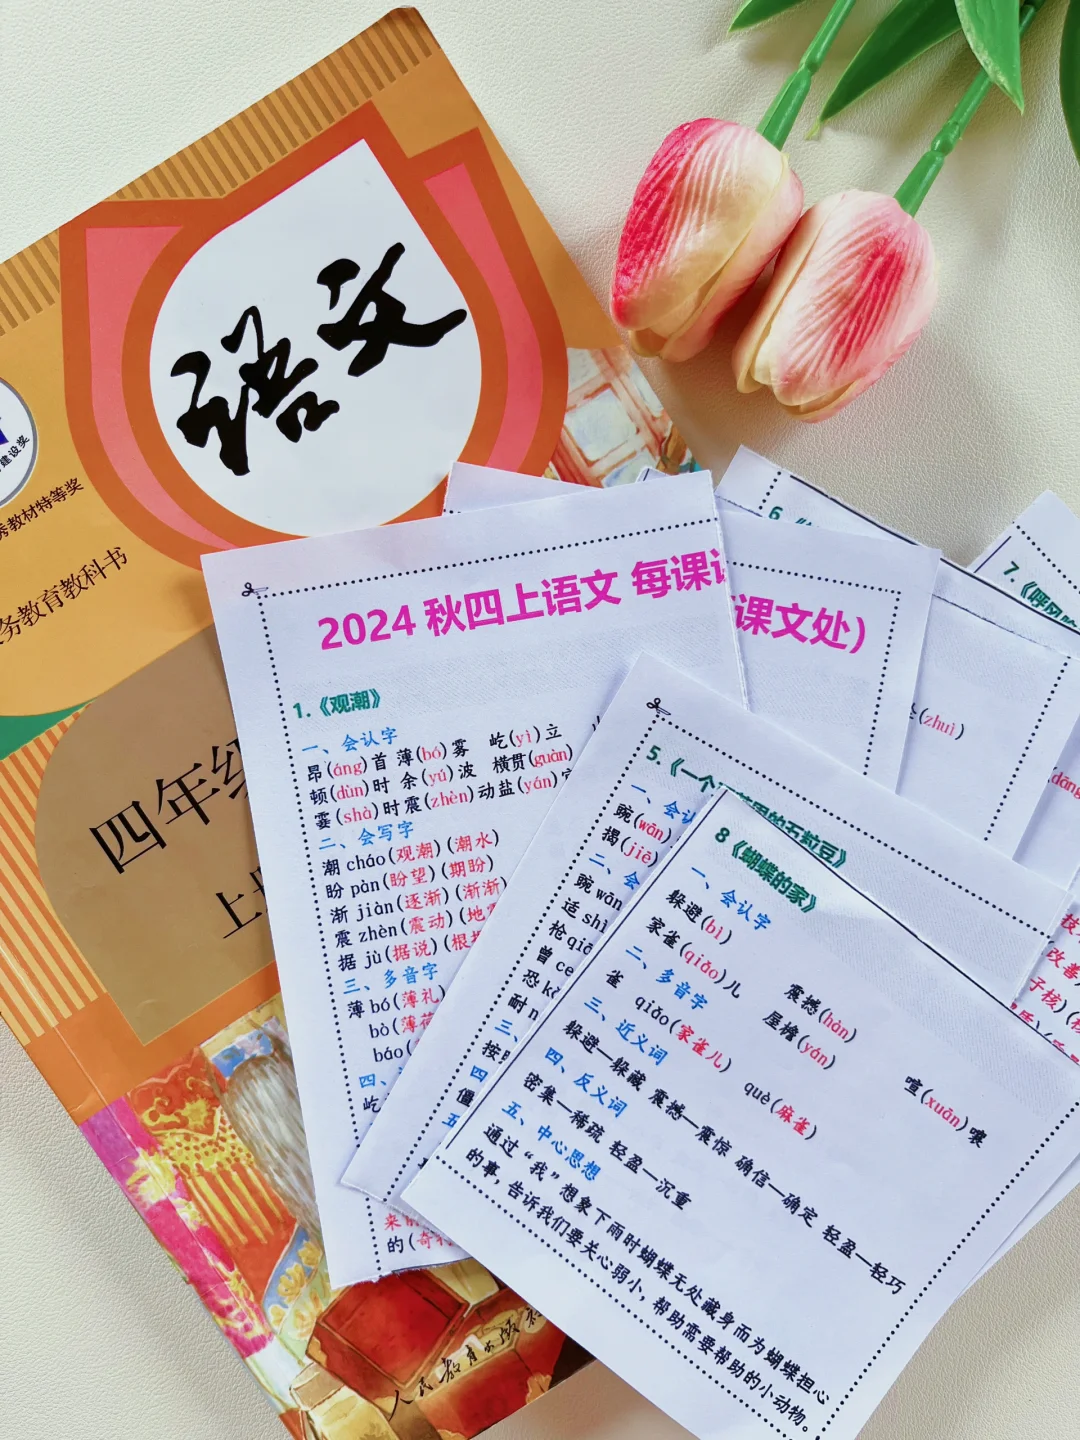 语文
建设奖
秀教材特等奖
务教育教科书
四年级
上册
人民教育出版社
2024 秋四上语文 每课
课文处)
1.《观潮》
一、会认字
昂(áng)首 薄(bó)雾 屹(yì)立
顿(dùn)时 余(yú)波 横贯(guàn)
霎(shà)时震(zhèn)动盐(yán)官
二、会写字
潮 cháo(观潮) (潮水)
盼 pàn(盼望) (期盼)
渐 jiàn(逐渐) (渐渐)
震 zhèn(震动) (地震
据 jù(据说) (根据
三、多音字
薄 bó(薄礼)
bò(薄荷
báo(
四、
屹
来
的(奇
6《
7.《呼风唤
(zhuì)
(dāng
技
改善
子核)(核
5.《一个豆荚里的五粒豆》
一、会认
豌(wān)
揭(jiē)
二、会
豌 wān
适 shì
枪 qiā
曾 cé
恐 kǒ
耐 n
三、
按
四
僵
五
8《蝴蝶的家》
一、会认字
躲避(bì) 震撼(hàn) 喧(xuān)嚷
家雀(qiǎo)儿 屋檐(yán)
二、多音字
雀 qiǎo(家雀儿) què(麻雀)
三、近义词
躲避—躲藏 震撼—震惊 确信—确定 轻盈—轻巧
四、反义词
密集—稀疏 轻盈—沉重
五、中心思想
通过“我”想象下雨时蝴蝶无处藏身而为蝴蝶担心
的事，告诉我们要关心弱小，帮助需要帮助的小动物。